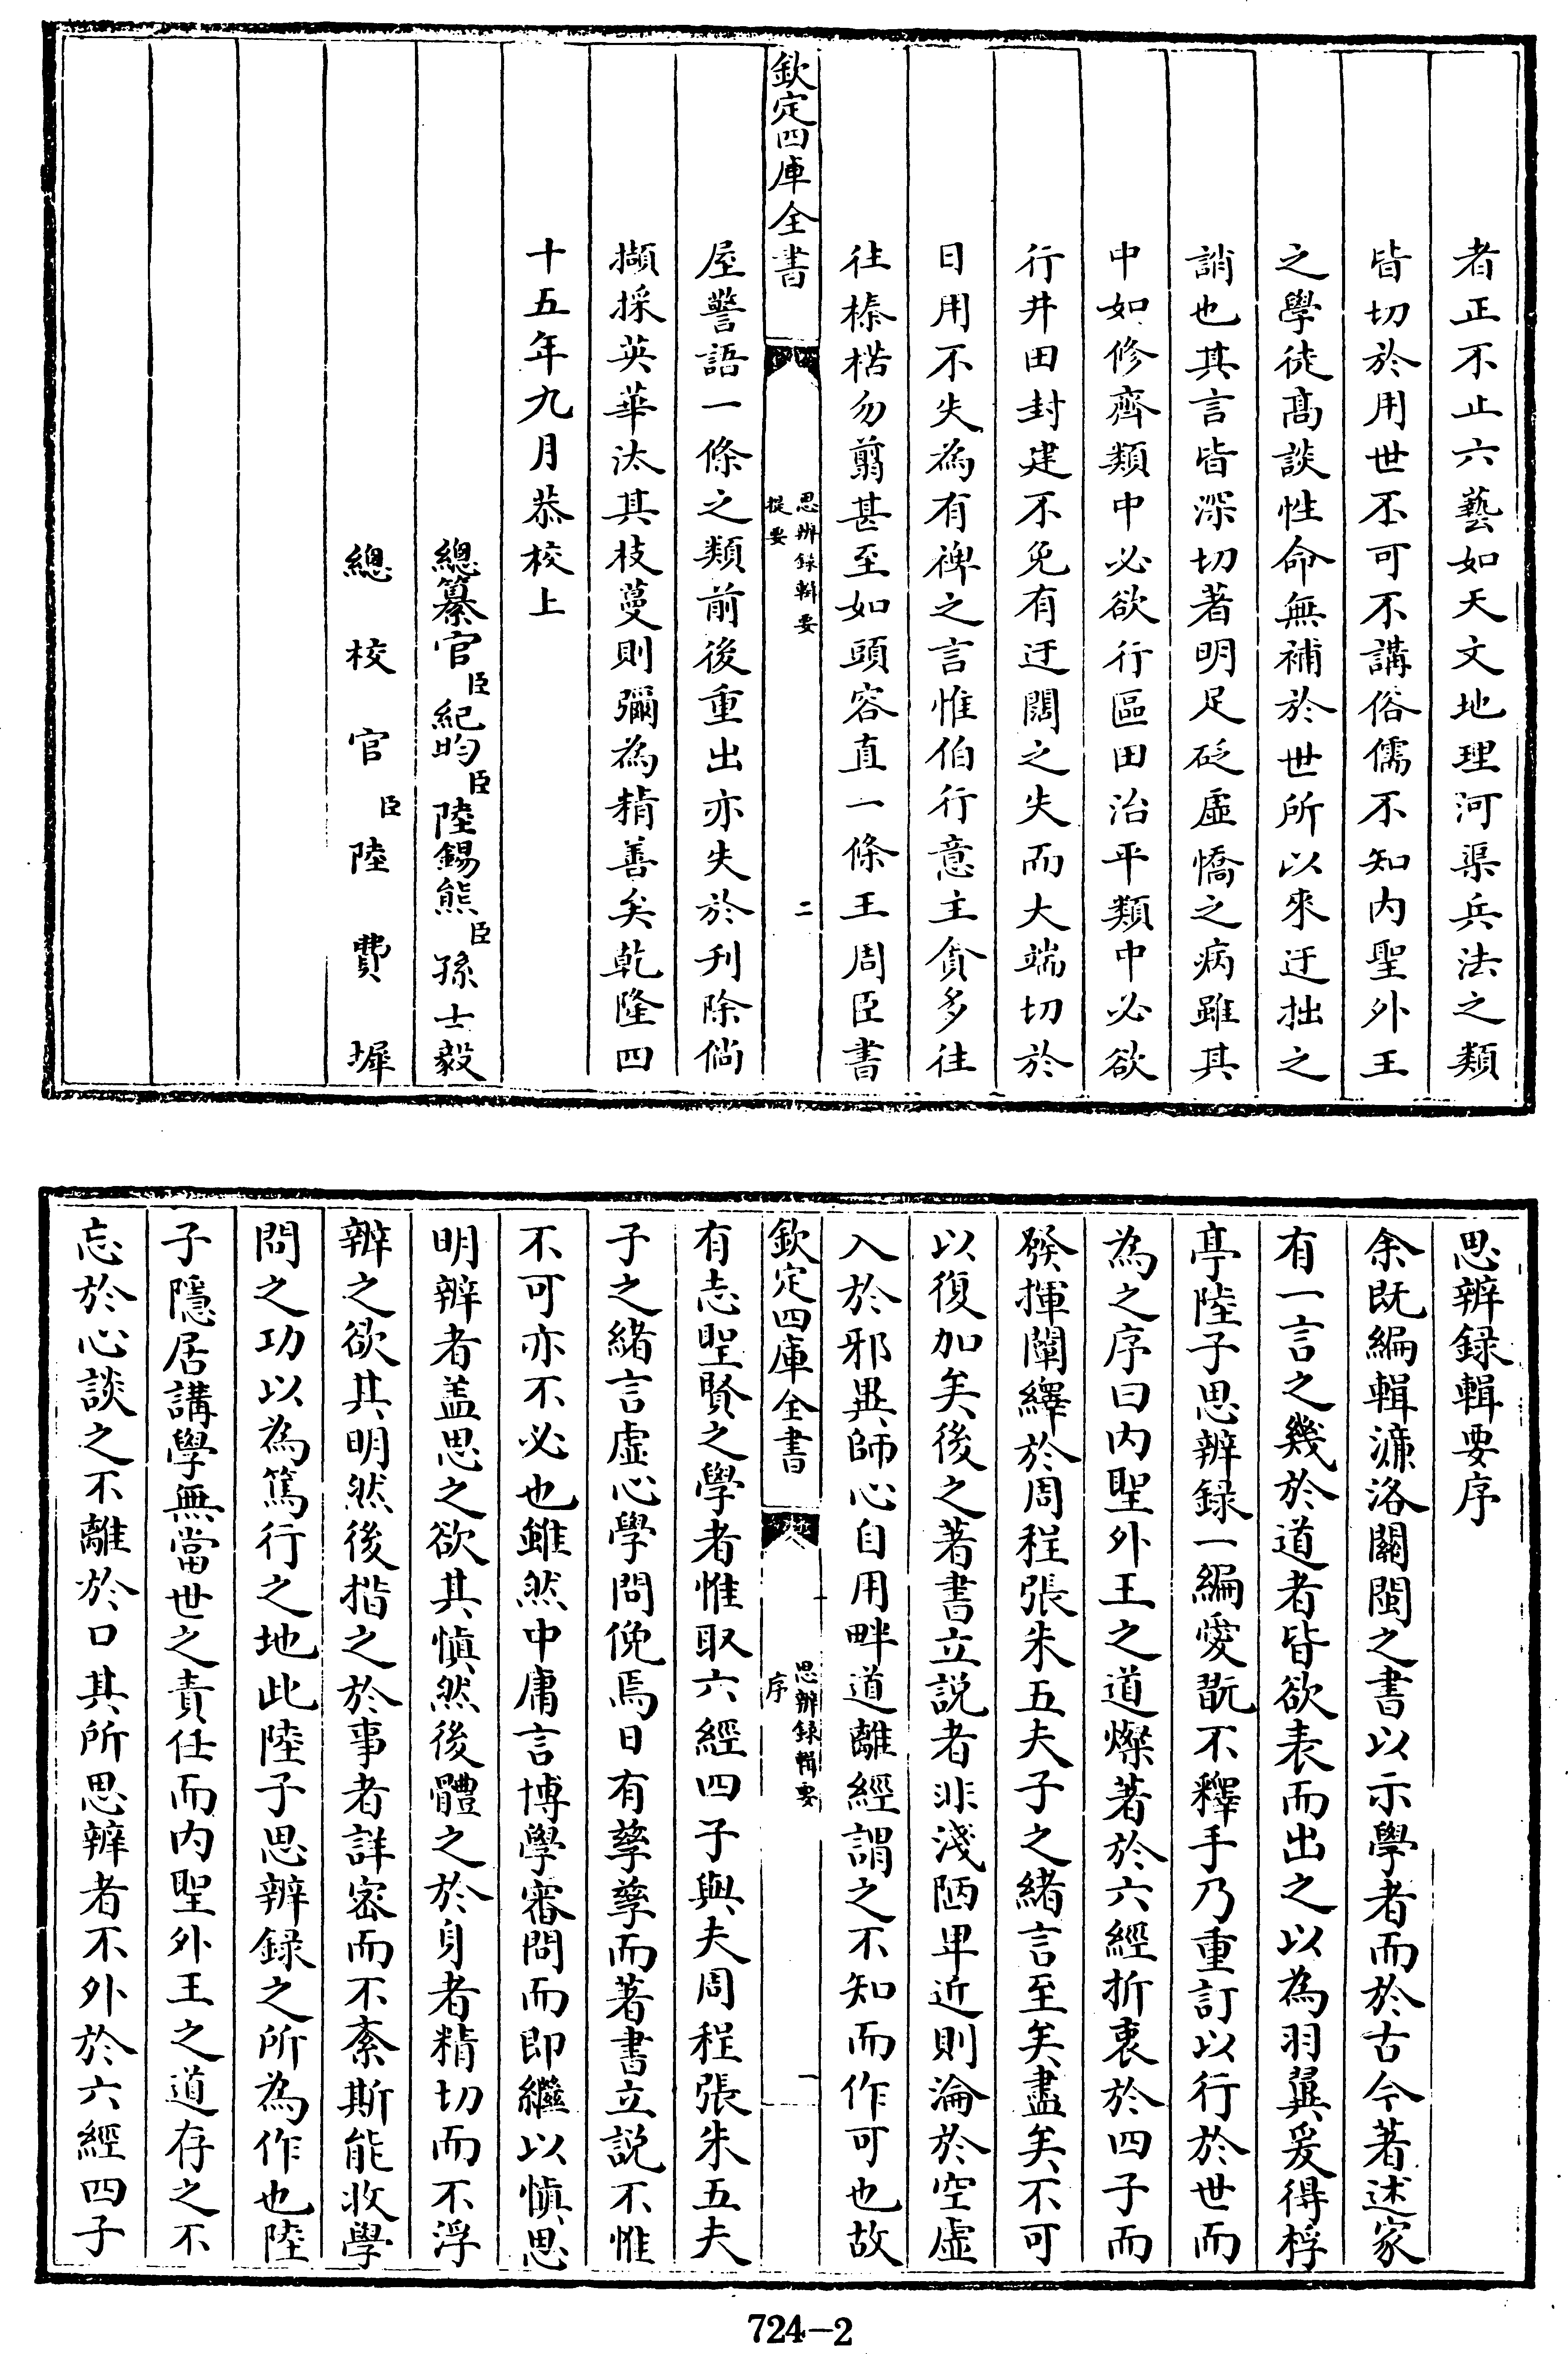 者正不止六藝如天文地理河渠兵法之類
皆切於用世不可不講俗儒不知内聖外王
之學徒髙談性命無補於世所以來迂拙之
誚也其言皆深切著明足砭虛憍之病雖其
中如修齊類中必欲行區田治平類中必欲
行井田封建不免有迂闊之失而大端切於
日用不失為有裨之言惟伯行意主貪多往
往榛楛勿翦甚至如頭容直一條王周臣書
欽定四庫全書
思辨錄輯要
提要
二
屋警語一條之類前後重出亦失於刋除倘
擷採英華汰其枝蔓則彌為精善矣乾隆四
十五年九月恭校上
總纂官臣紀昀臣陸錫熊臣孫士毅
總校官臣陸費墀
思辨録輯要序
余既編輯濂洛關閩之書以示學者而於古今著述家
有一言之幾於道者皆欲表而出之以為羽翼爰得桴
亭陸子思辨録一編愛翫不釋手乃重訂以行於世而
為之序曰内聖外王之道燦著於六經折衷於四子而
發揮闡繹於周程張朱五夫子之緒言至矣盡矣不可
以復加矣後之著書立説者非淺陋卑近則淪於空虛
入於邪異師心自用畔道離經謂之不知而作可也故
欽定四庫全書
思辨録輯要
序
一
有志聖賢之學者惟取六經四子與夫周程張朱五夫
子之緒言虛心學問俛焉日有孳孳而著書立説不惟
不可亦不必也雖然中庸言博學審問而即繼以慎思
明辨者盖思之欲其慎然後體之於身者精切而不浮
辨之欲其明然後措之於事者詳宻而不紊斯能收學
問之功以為篤行之地此陸子思辨録之所為作也陸
子隱居講學無當世之責任而内聖外王之道存之不
忘於心談之不離於口其所思辨者不外於六經四子
724-2